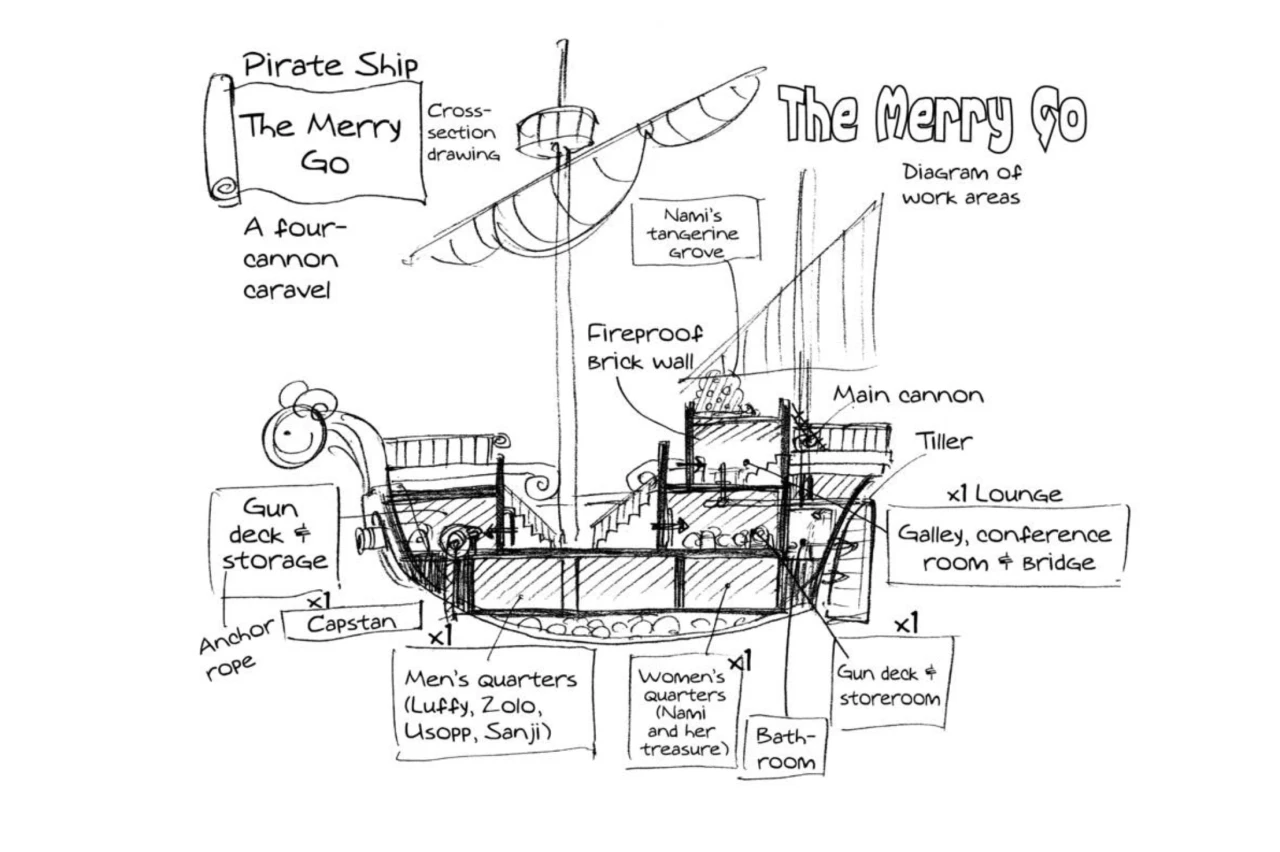 Pirate Ship
The Merry
Go
Cross-
section
drawing
A four-
cannon
caravel
The Merry Go
Diagram of
work areas
Nami's
tangerine
grove
Fireproof
brick wall
Main cannon
Tiller
x1 Lounge
Galley, conference
room & bridge
Gun
deck &
storage
x1
Capstan
Anchor
rope
x1
Men's quarters
(Luffy, Zolo,
Usopp, Sanji)
x1
Women's
quarters
(Nami
and her
treasure)
Bath-
room
x1
Gun deck &
storeroom